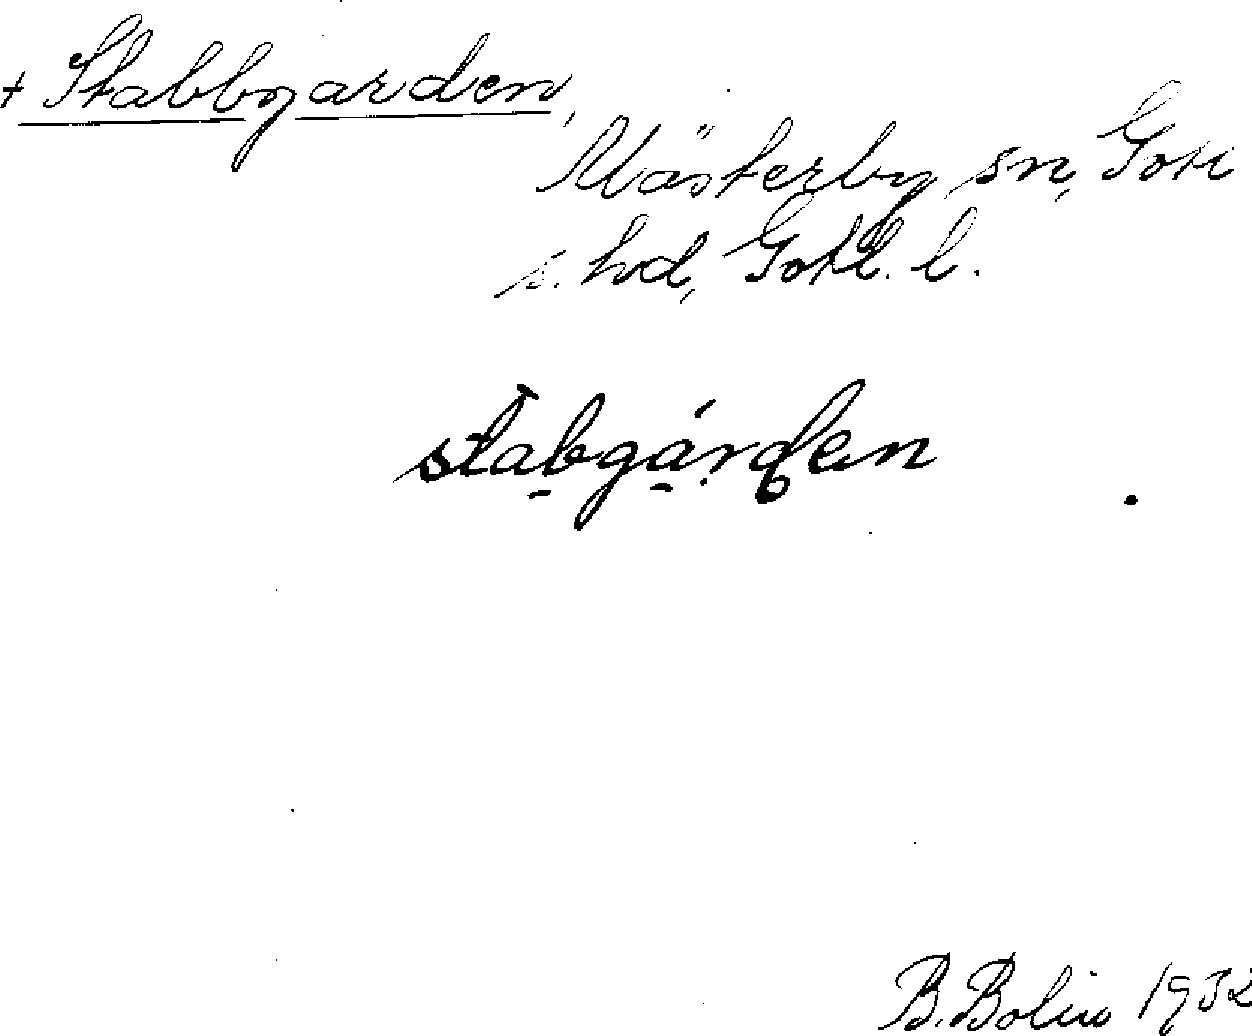 + Stabbgarden,
Västerby sn, Gotl
s. hd, Gotl. l.
stabgárden
B. Bolin 1932